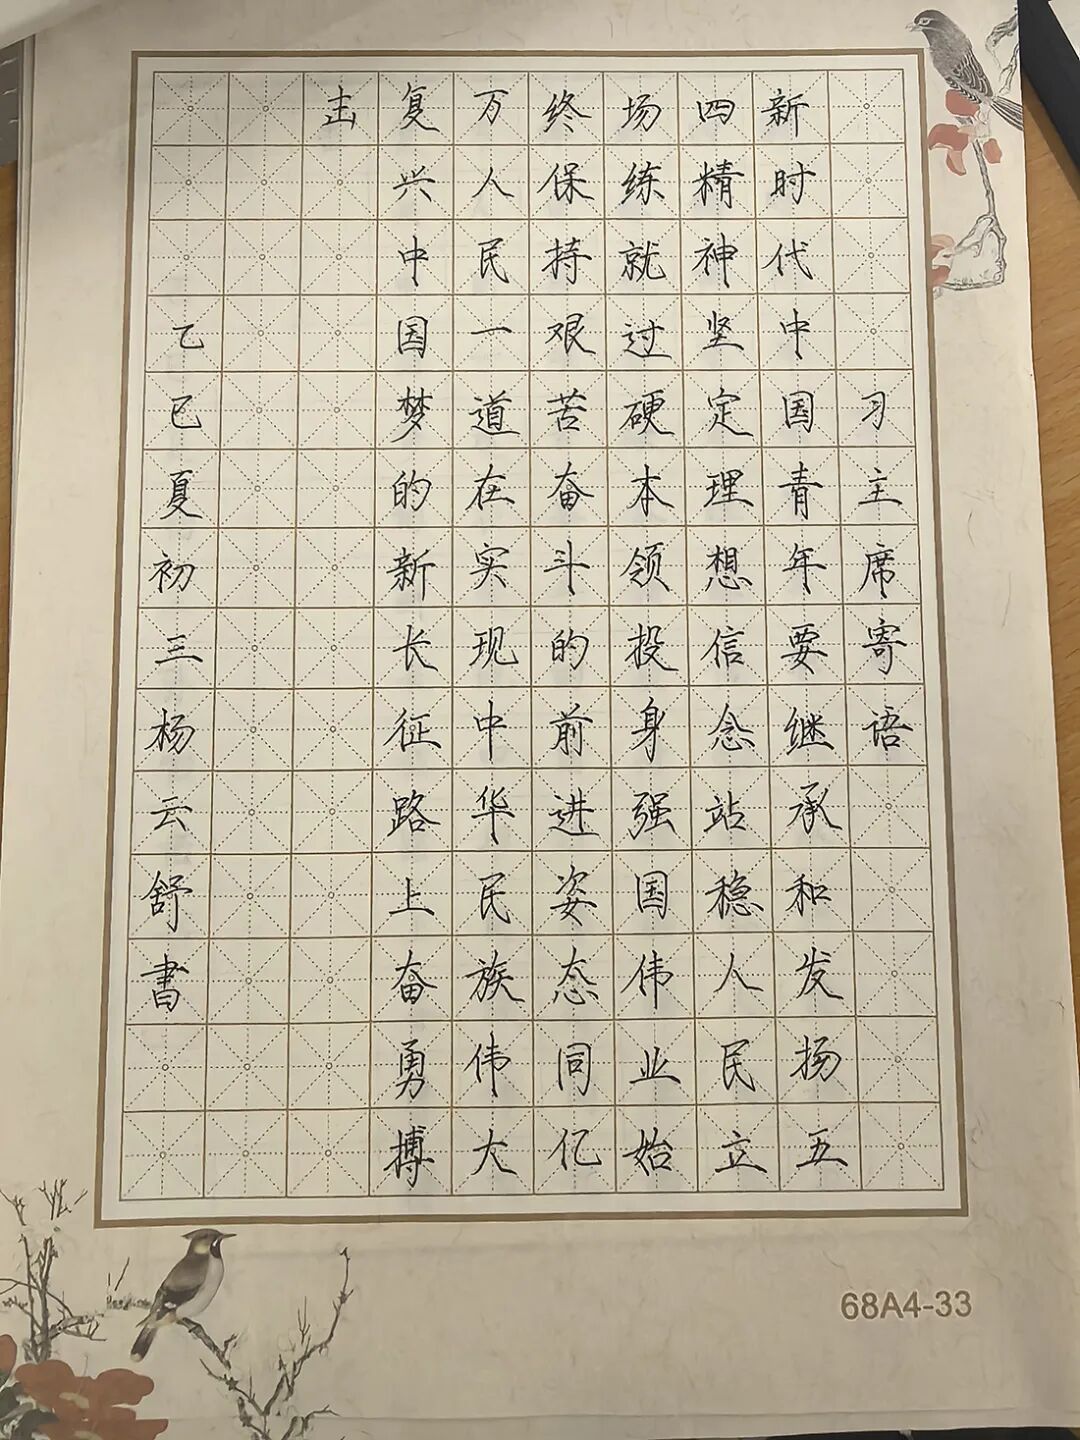 习主席寄语
新时代中国青年要继承和发扬五
四精神坚定理想信念站稳人民立
场练就过硬本领投身强国伟业始
终保持艰苦奋斗的前进姿态同亿
万人民一道在实现中华民族伟大
复兴中国梦的新长征路上奋勇搏
击
乙巳夏初三杨云舒書
68A4-33